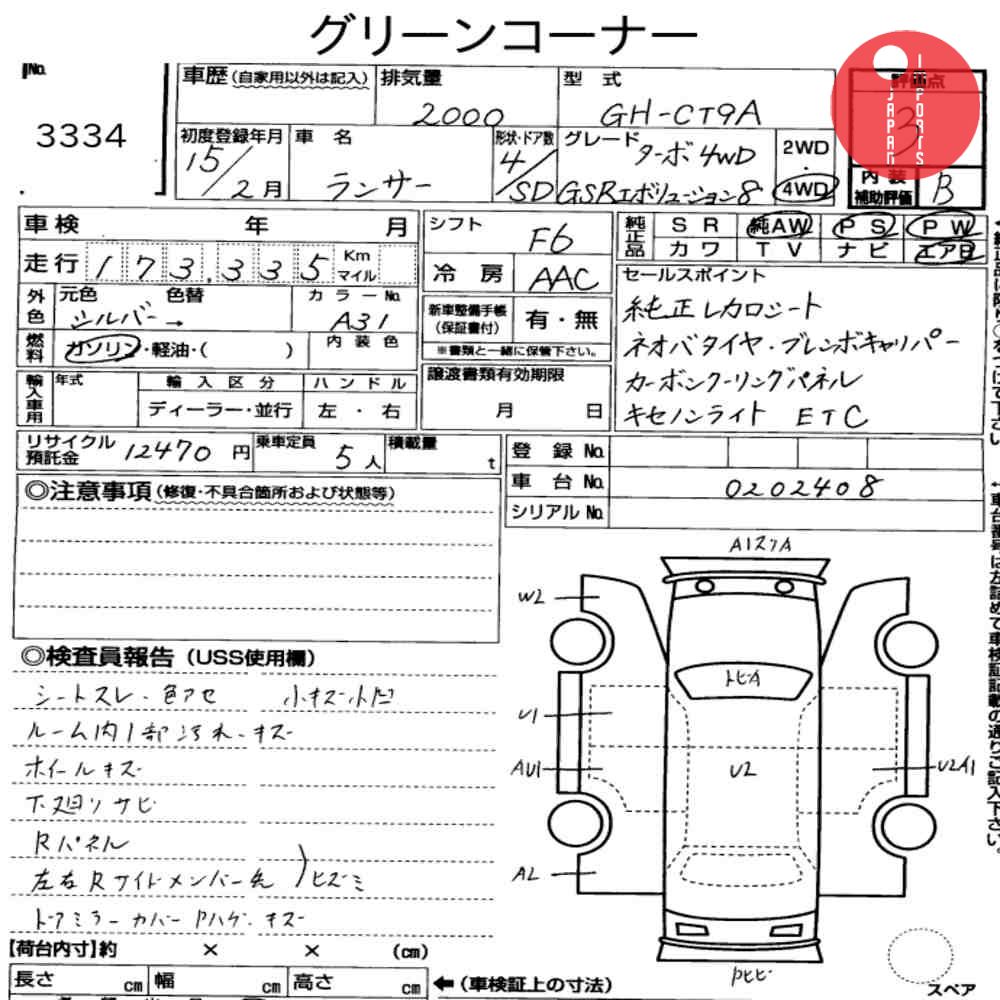 グリーンコーナー
No.
3334
車歴(自家用以外は記入)
排気量
2000
型 式
GH-CT9A
評価点
3
JAPAN IMPORTS
初度登録年月
15/2月
車 名
ランサー
形状・ドア数
4/SD
グレード
ターボ4WD
GSRエボリューション8
2WD
・
4WD
内 装
補助評価
B
車検 年 月
シフト
F6
純正品
SR 純AW PS PW
カワ TV ナビ エアB
走行 173,335 Km
マイル
冷 房
AAC
セールスポイント
純正レカロシート
ネオバタイヤ・ブレンボキャリパー
カーボンクーリングパネル
キセノンライト ETC
外色
元色 色替
シルバー→
カラーNo.
A31
新車整備手帳
(保証書付)
有・無
※書類と一緒に保管下さい。
燃料
ガソリン・軽油・( )
内装色
輸入車用
年式
輸入区分
ディーラー・並行
ハンドル
左・右
譲渡書類有効期限
月 日
リサイクル
預託金
12470 円
乗車定員
5人
積載量
t
登 録 No.
車 台 No.
0202408
シリアル No.
◎注意事項(修復・不具合箇所および状態等)
◎検査員報告(USS使用欄)
シートスレ・色アセ 小キズ小凹
ルーム内1部汚れ・キズ
ホイールキズ
下廻りサビ
Rパネル
左右Rサイドメンバー先 )ヒズミ
ドアミラーカバーPハゲ・キズ
W2
U1
AU1
A2
トビA
U2
U2A1
【荷台内寸】約 × × (cm)
長さ cm 幅 cm 高さ cm
←(車検証上の寸法)
スペア